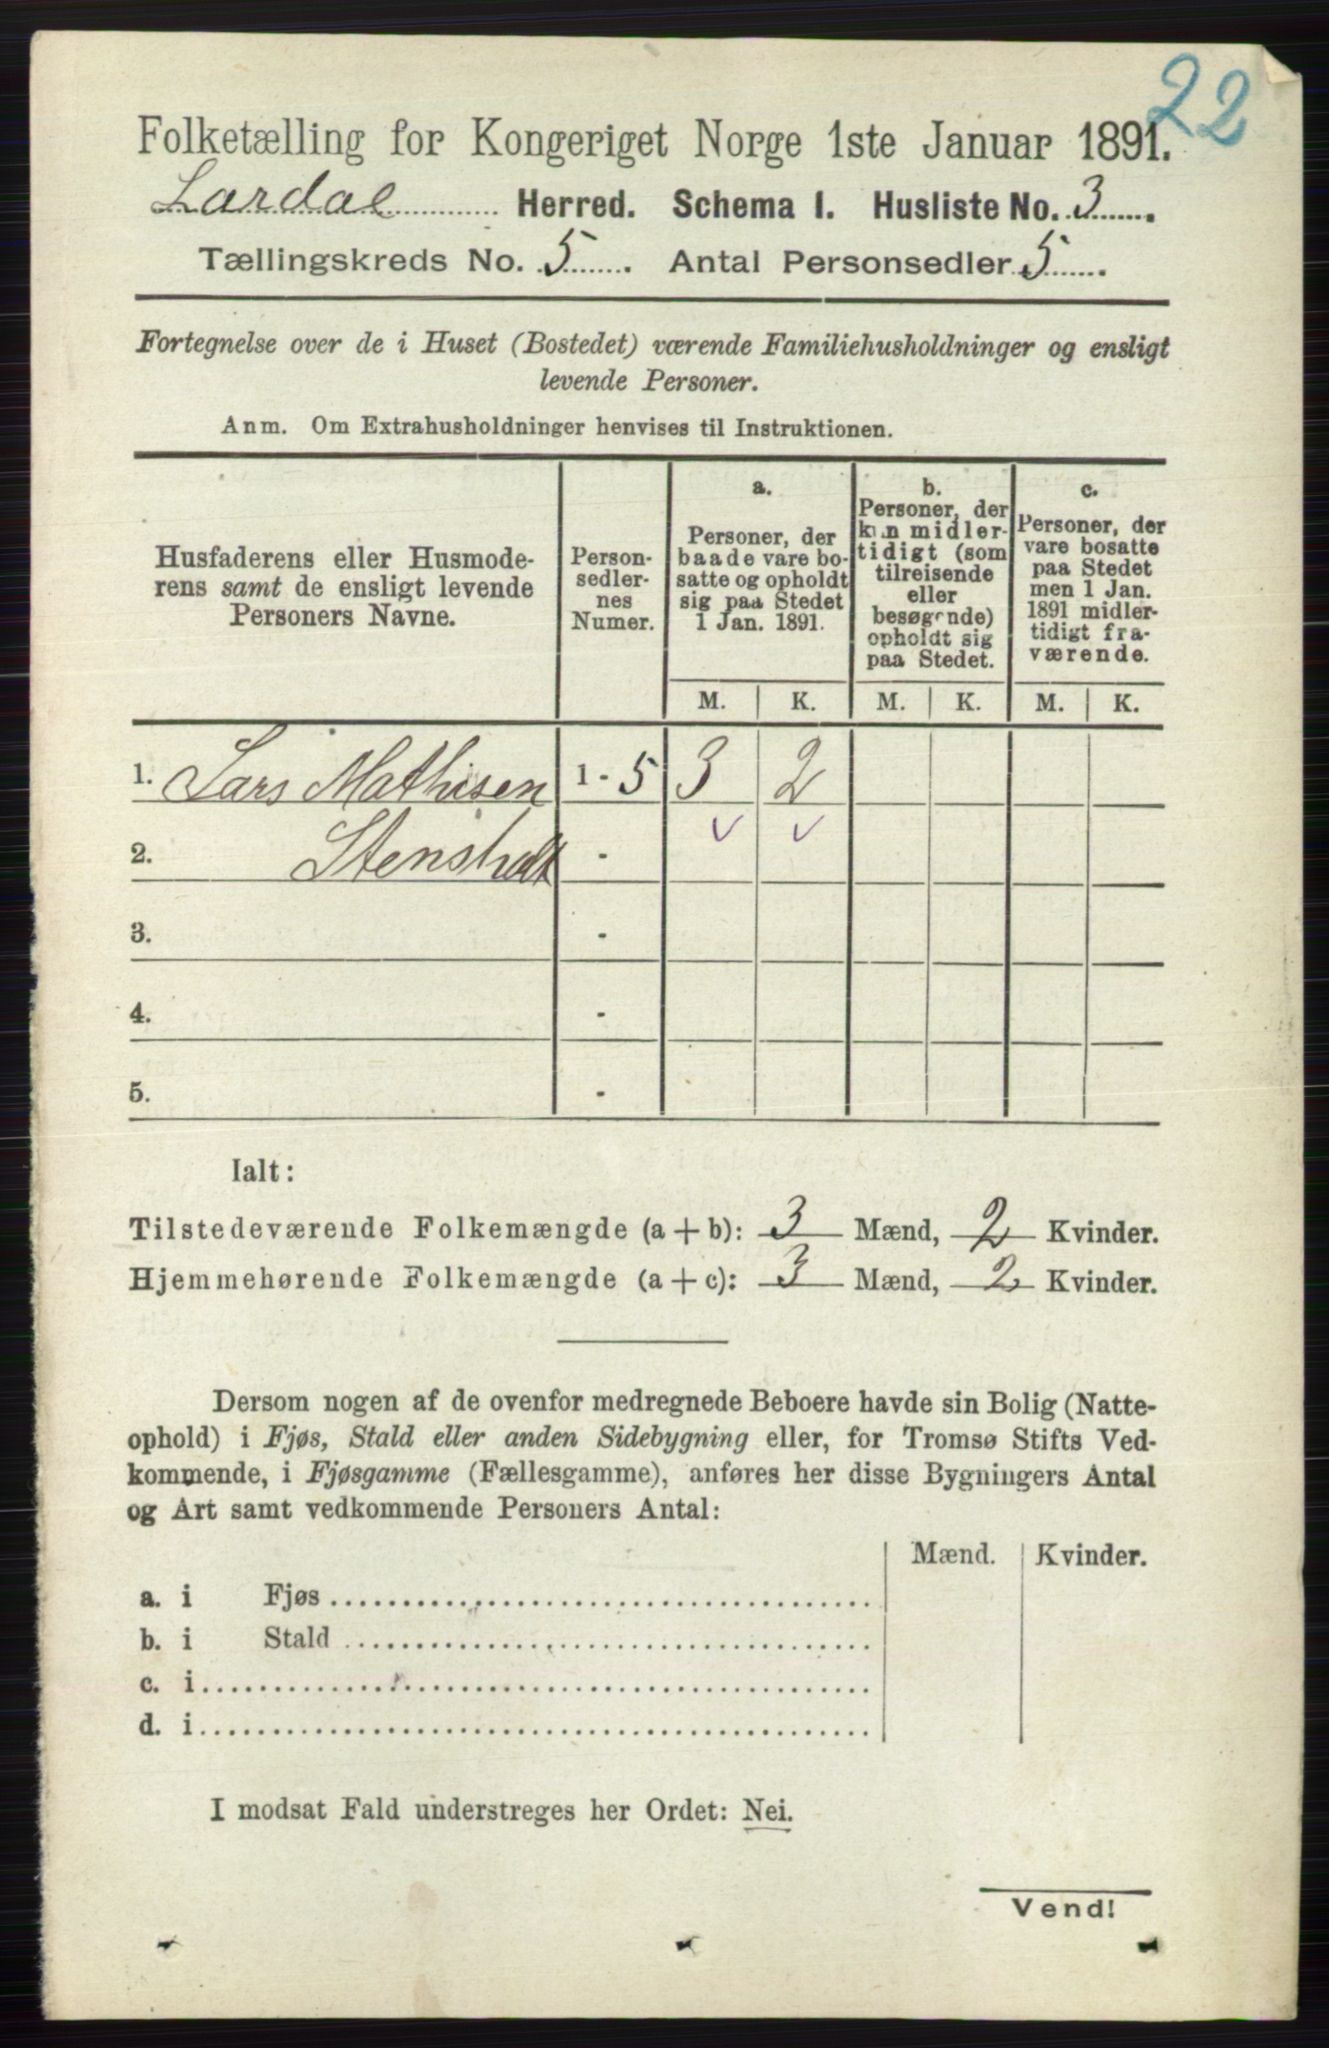 22
Folketælling for Kongeriget Norge 1ste Januar 1891.
Lardal Herred. Schema I. Husliste No. 3.
Tællingskreds No. 5. Antal Personsedler 5.
Fortegnelse over de i Huset (Bostedet) værende Familiehusholdninger og ensligt
levende Personer.
Anm. Om Extrahusholdninger henvises til Instruktionen.
Husfaderens eller Husmode-
rens samt de ensligt levende
Personers Navne.
Person-
sedler-
nes
Numer.
a.
Personer, der
baade vare bo-
satte og opholdt
sig paa Stedet
1 Jan. 1891.
b.
Personer, der
kun midler-
tidigt (som
tilreisende
eller
besøgende)
opholdt sig
paa Stedet.
c.
Personer, der
vare bosatte
paa Stedet
men 1 Jan.
1891 midler-
tidigt fra-
værende.
M. K. M. K. M. K.
1. Lars Mathisen 1 - 5 3 2
2. Stensholt - v v
3. -
4. -
5. -
Ialt:
Tilstedeværende Folkemængde (a + b): 3 Mænd, 2 Kvinder.
Hjemmehørende Folkemængde (a + c): 3 Mænd, 2 Kvinder.
Dersom nogen af de ovenfor medregnede Beboere havde sin Bolig (Natte-
ophold) i Fjøs, Stald eller anden Sidebygning eller, for Tromsø Stifts Ved-
kommende, i Fjøsgamme (Fællesgamme), anføres her disse Bygningers Antal
og Art samt vedkommende Personers Antal:
Mænd. Kvinder.
a. i Fjøs
b. i Stald
c. i
d. i
I modsat Fald understreges her Ordet: Nei.
Vend!